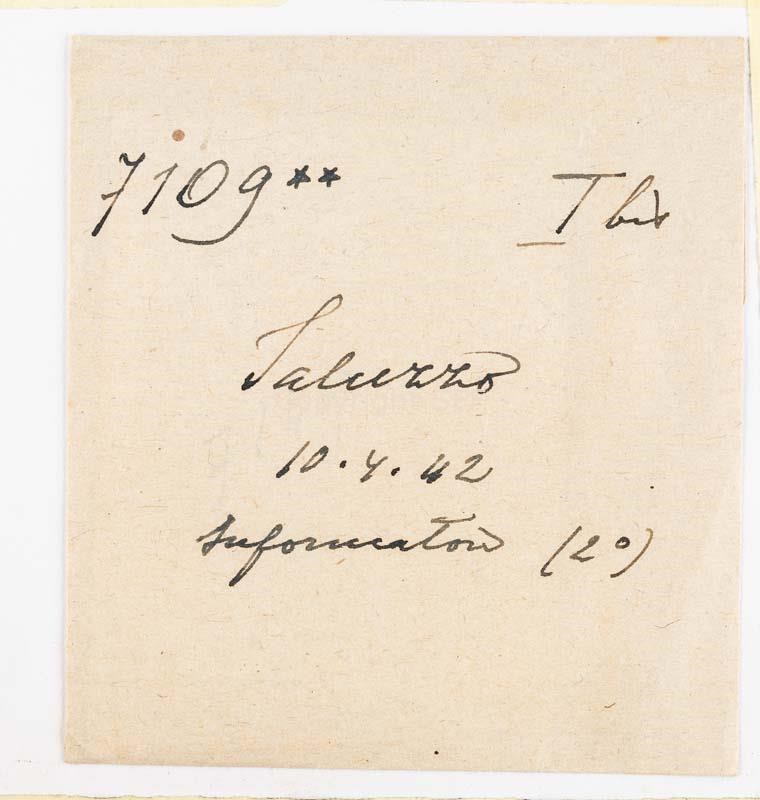 7109** I bis
Saluzzo
10.4.42
Informatori (2°)